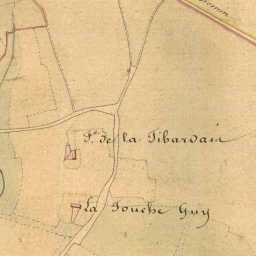 Pte de la Tibardais
La Touche Guy